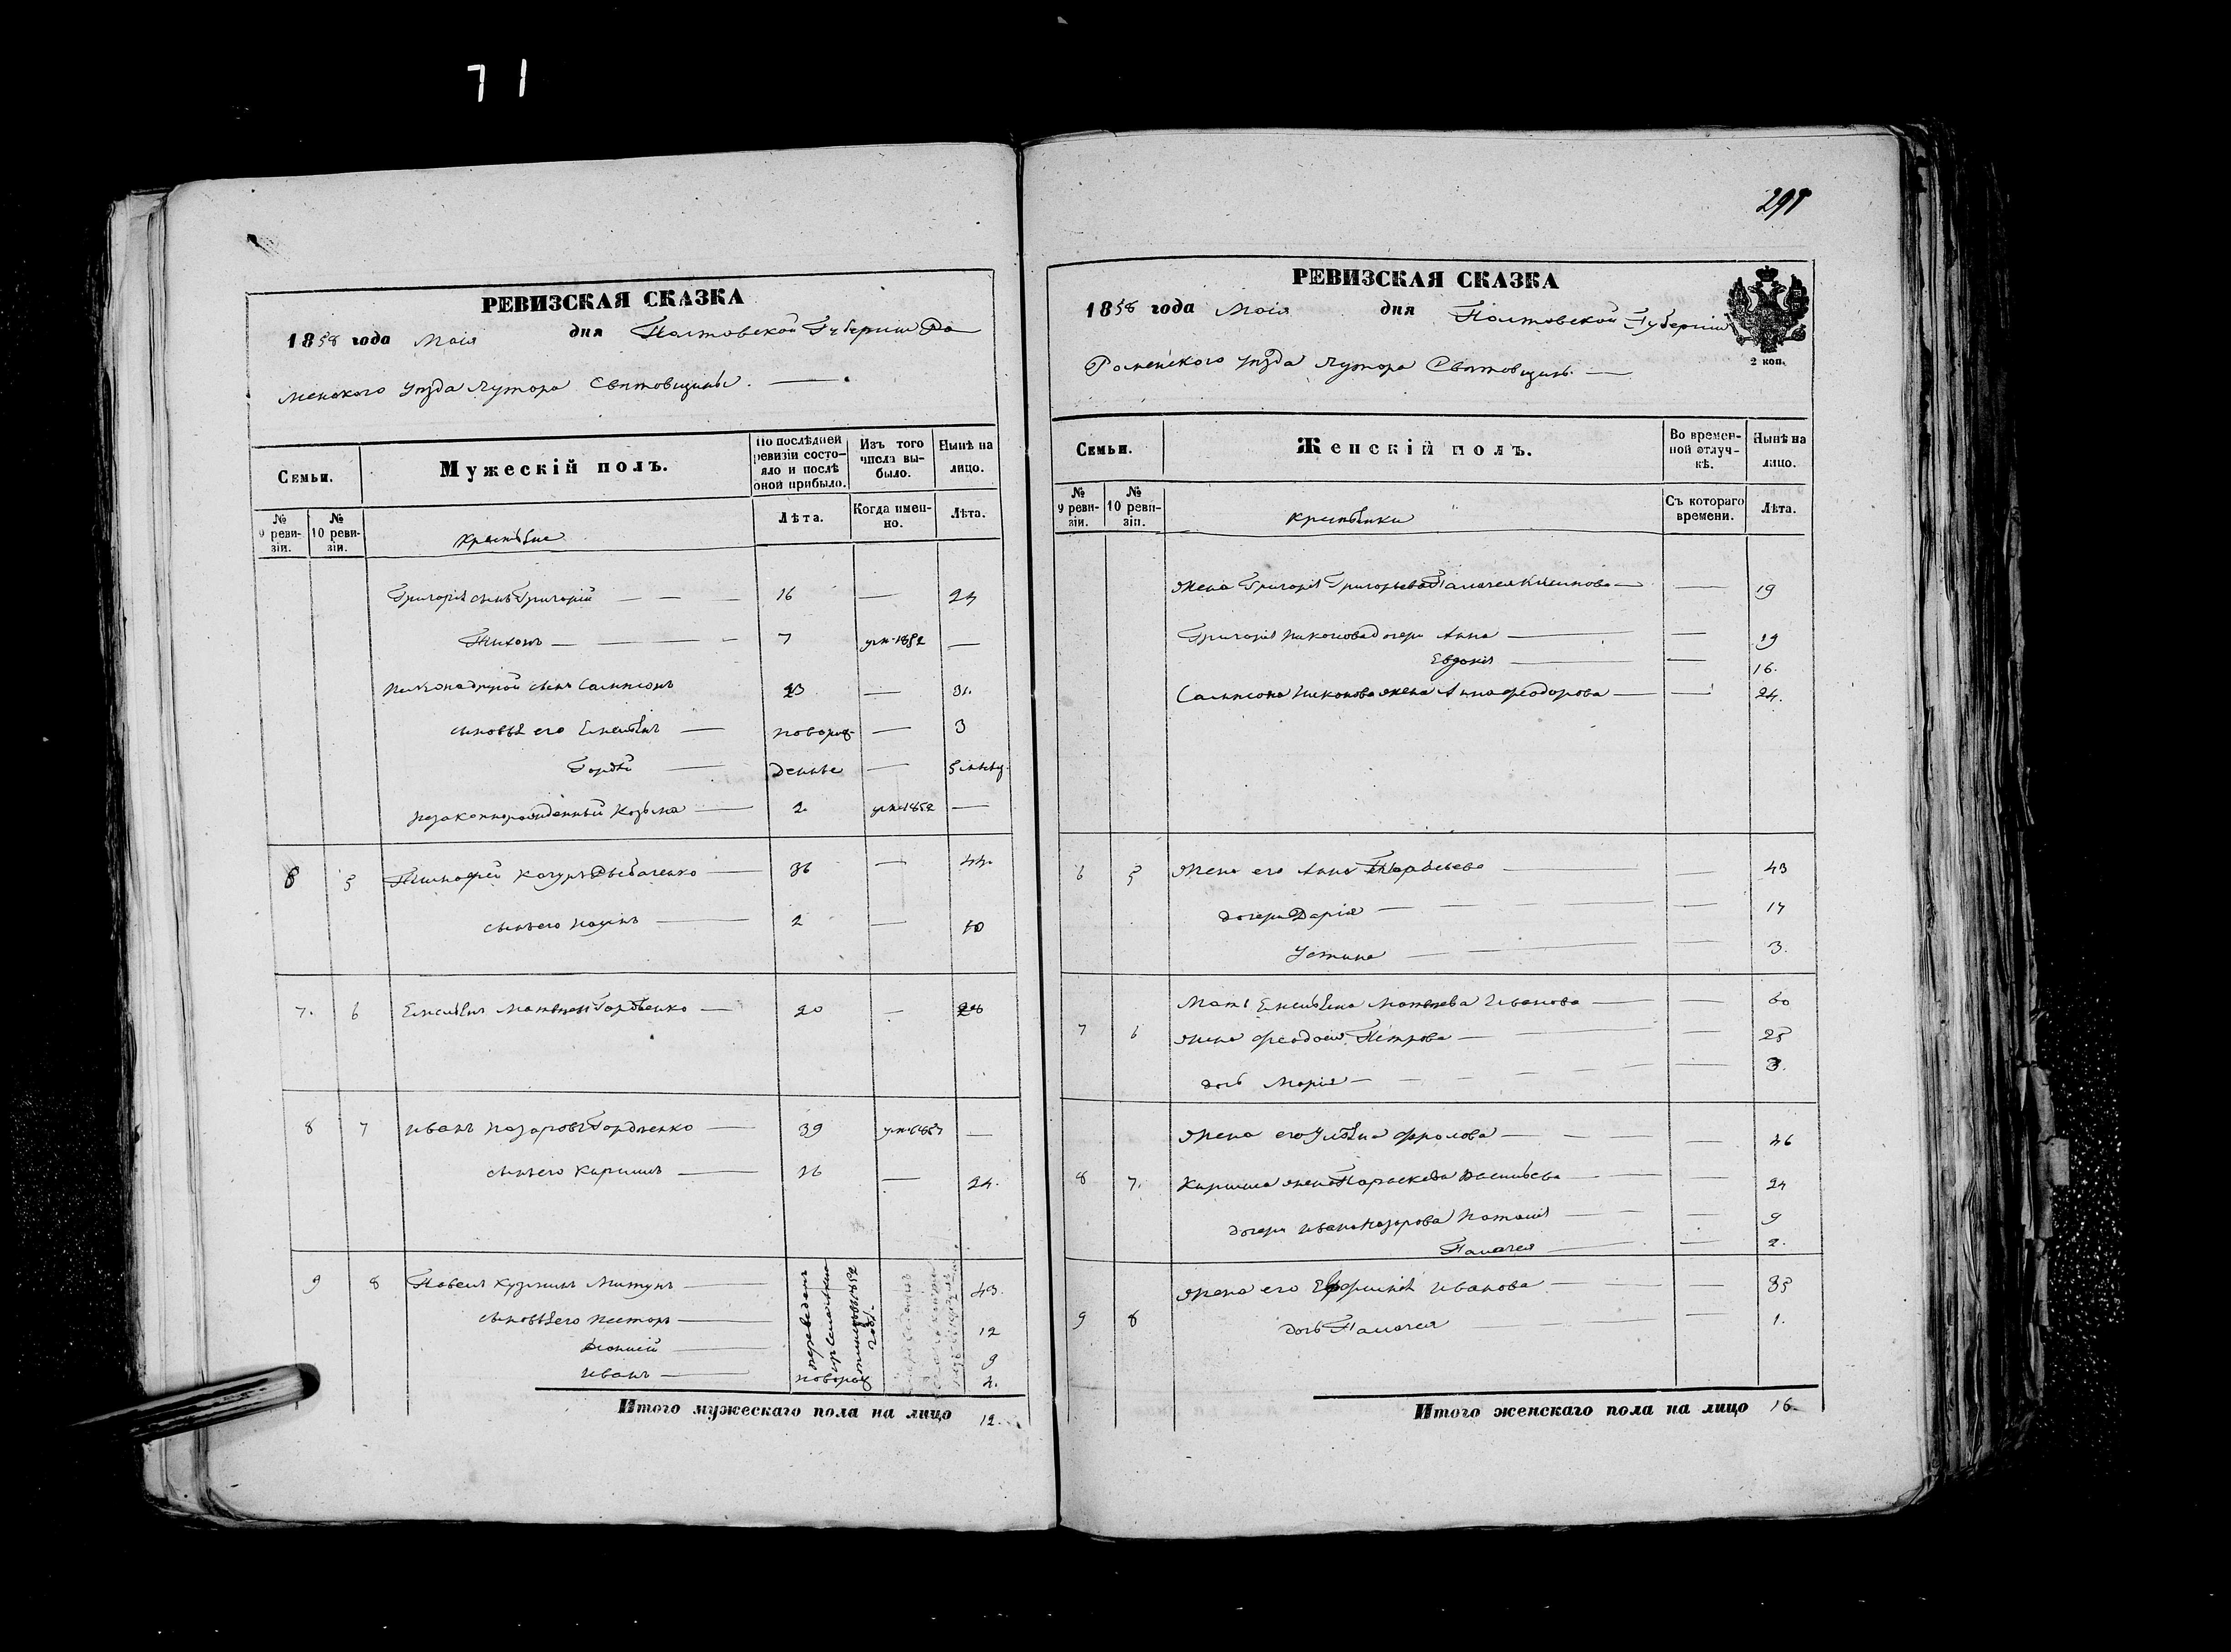 71
295
РЕВИЗСКАЯ СКАЗКА
1858 года Маія дня Полтовской Губерніи Ро
менского уѣзда хутора Святовщины.
Семьи.
Мужескій полъ.
По послѣдней ревизіи состояло и послѣ оной прибыло.
Изъ того числа выбыло.
Нынѣ на лицо.
№ 9 ревизіи.
№ 10 ревизіи.
крестьяне
Лѣта.
Когда именно.
Лѣта.
Григорія сынъ Григорій 16 — 24
Тихонъ 7 ум. 1852 —
сынъ Сампсонъ 23 — 31.
сыновья его Емельянъ новорож- — 3
Гордѣй денные —
незаконнорожденный Козьма 2 ум. 1852 —
6 5 Тимофей 36 — 44.
сынъ его Наумъ 2 — 10
7. 6 Емельянъ Матвѣевъ Гордѣенко 20 — 28
8 7 Иванъ Назаровъ Гордѣенко 39 —
сынъ его Кирилъ 16 — 24.
9 8 Павелъ Кузминъ Митунъ переведенъ 43.
сыновья его Несторъ 12
9
Иванъ новорож
Итого мужескаго пола на лицо 12.
РЕВИЗСКАЯ СКАЗКА
1858 года Маія дня Полтовской Губерніи
2 коп.
Роменского уѣзда хутора Святовщины
Семьи.
Женскій полъ.
Во временной отлучкѣ.
Нынѣ на лицо.
№ 9 ревизіи.
№ 10 ревизіи.
крестьянки
Съ котораго времени.
Лѣта.
жена Григорія Григорьева Палагея Климнова — 19
Григорія Никонова дочери Анна — 19
Евдокія — 16.
Сампсона Никонова жена Анна Феодорова — 24.
6 5 жена его Анна — 43
дочери Дарія — 14
Устина — 3.
Мать Емельяна Матвѣева Иванова — 60
7 6 жена Феодосія Петрова — 25
дочь Марія — 3.
жена его Ульяна Фролова — 46
8 7. Кирила жена Параскева Васильева — 24
дочери Ивана Назарова Наталія — 9
Палагея — 2.
жена его Ефросинія Иванова — 35
9 8 дочь Палагея — 1.
Итого женскаго пола на лицо 16.